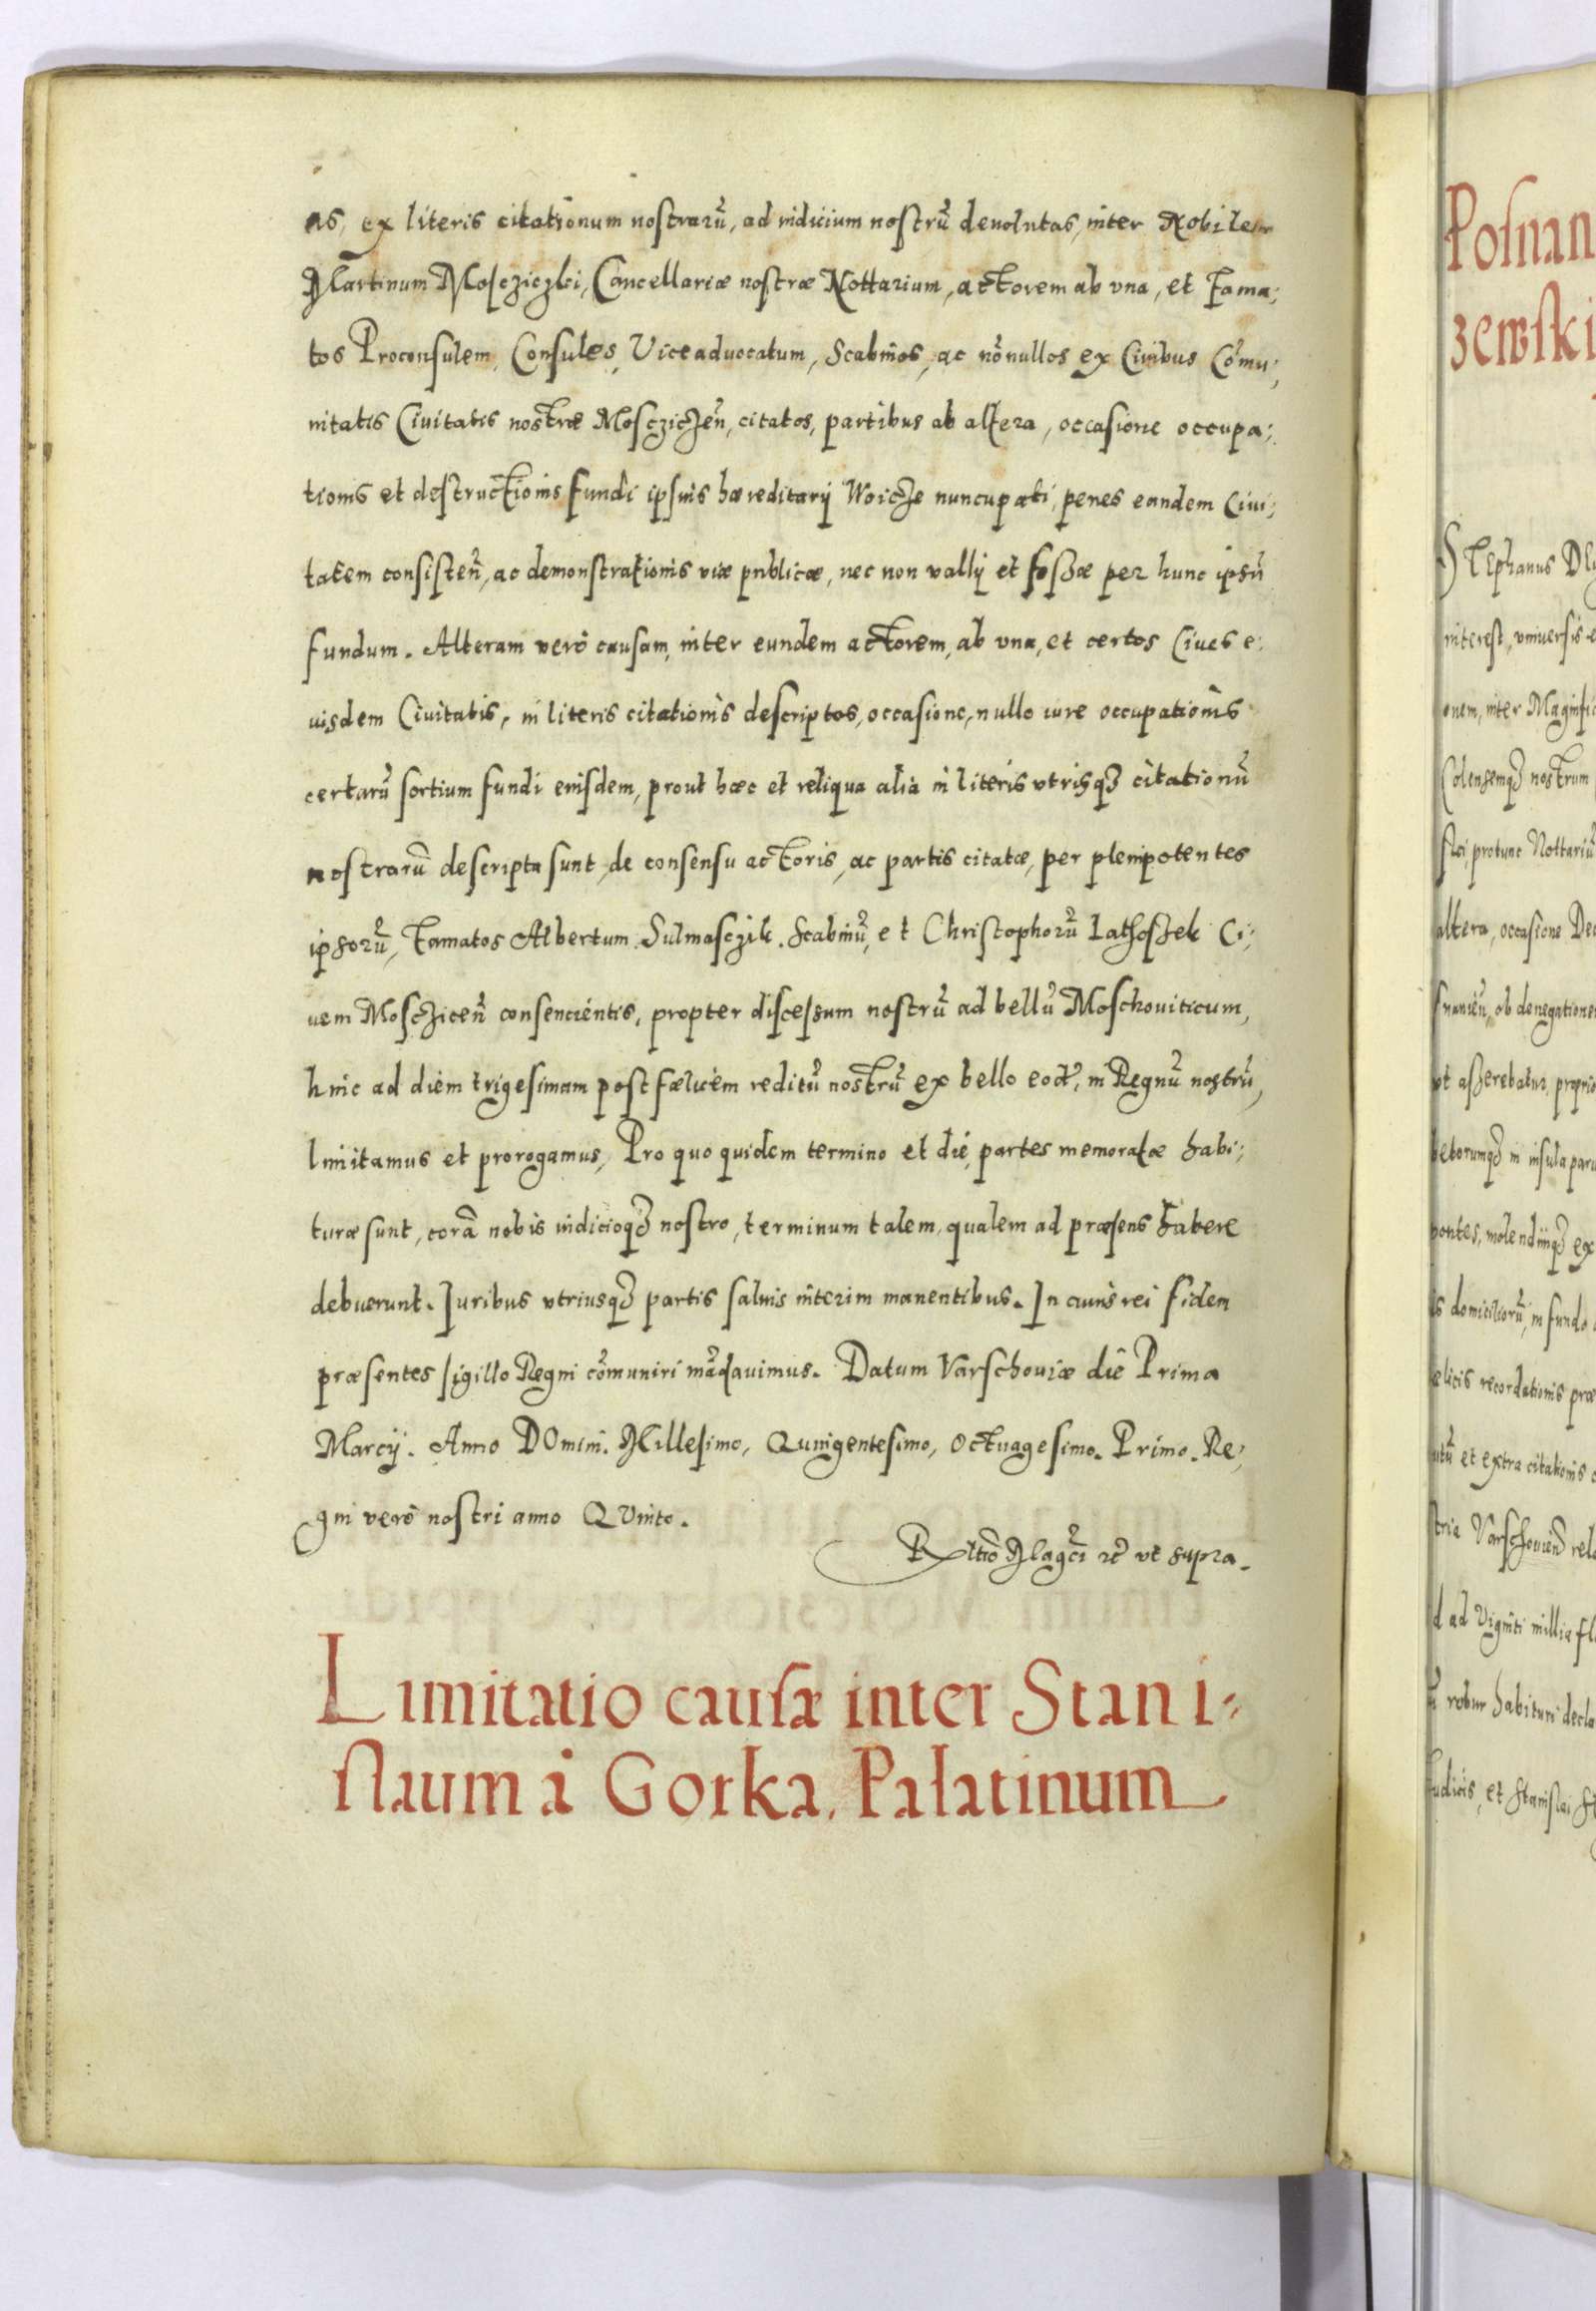 as, ex literis citationum nostrarũ, ad iudicium nostrũ deuolutas, inter Nobilem
Martinum Moscziczki, Cancellariæ nostræ Nottarium, actorem ab vna, et Fama;
tos Proconsulem, Consules, Viceaduocatum, Scabinos, ac nõnullos ex Ciuibus Cõmu;
nitatis Ciuitatis nostræ Moscziczeñ, citatos, partibus ab altera, occasione occupa;
tionis et destructionis fundi ipsuis hæreditarÿ Woicze nuncupati, penes eandem Ciui;
tatem consisteñ, ac demonstrationis viæ publicæ, nec non vallÿ et foszæ per hunc ipsũ
fundum. Alteram verò causam, inter eundem actorem, ab vna, et certos Ciues e;
uisdem Ciuitatis, in literis citationis descriptos, occasione, nullo iure occupationis
certarũ sortium fundi eiusdem, prout hæc et reliqua alia in literis vtrisqꝫ citationũ
nostrarũ descripta sunt, de consensu actoris, ac partis citatæ, per plenipotentes
ipsorũ, Famatos Albertum Sulmasczik. Scabinũ, et Christophorũ Lathoszek Ci;
uem Moscziceñ consencientis, propter discessum nostrũ ad bellũ Moschouiticum,
hinc ad diem trigesimam post fælicem reditũ nostrũ ex bello eod̃, in Regnũ nostrũ,
limitamus et prorogamus, Pro quo quidem termino et die, partes memoratæ habi;
turæ sunt, corã nobis iudicioqꝫ nostro, terminum talem, qualem ad præsens habere
debuerunt. Iuribus vtriusqꝫ partis saluis interim manentibus. In cuius rei fidem
præsentes sigillo Regni cõmuniri mãdauimus. Datum Varschouiæ die Prima
Marcÿ. Anno DOmini. Millesimo, Quingentesimo, Octuagesimo. Primo. Re;
gni verò nostri anno QVinto.
Rltiõ Magc̃i ꝛc̃ vt supra.
Limitatio causæ inter Stani-
slaum à Gorka, Palatinum
Posnan
zewski
STephanus
interest, vniuersis
onem, inter Magnific
Colensemqꝫ nostrum
ski, protunc Nottariũ
altera, occasione
snanieñ, ob denegatione
vt aszerebatur, proprio
betorumqꝫ in insula
pontes, molendinqꝫ ex
is domiciliorũ, in fundo
ælicis recordationis præ
et extra citationis
Varschouieñ
d ad Viginti millia fl
robur habituri decla
Iudicis, et Stanislai